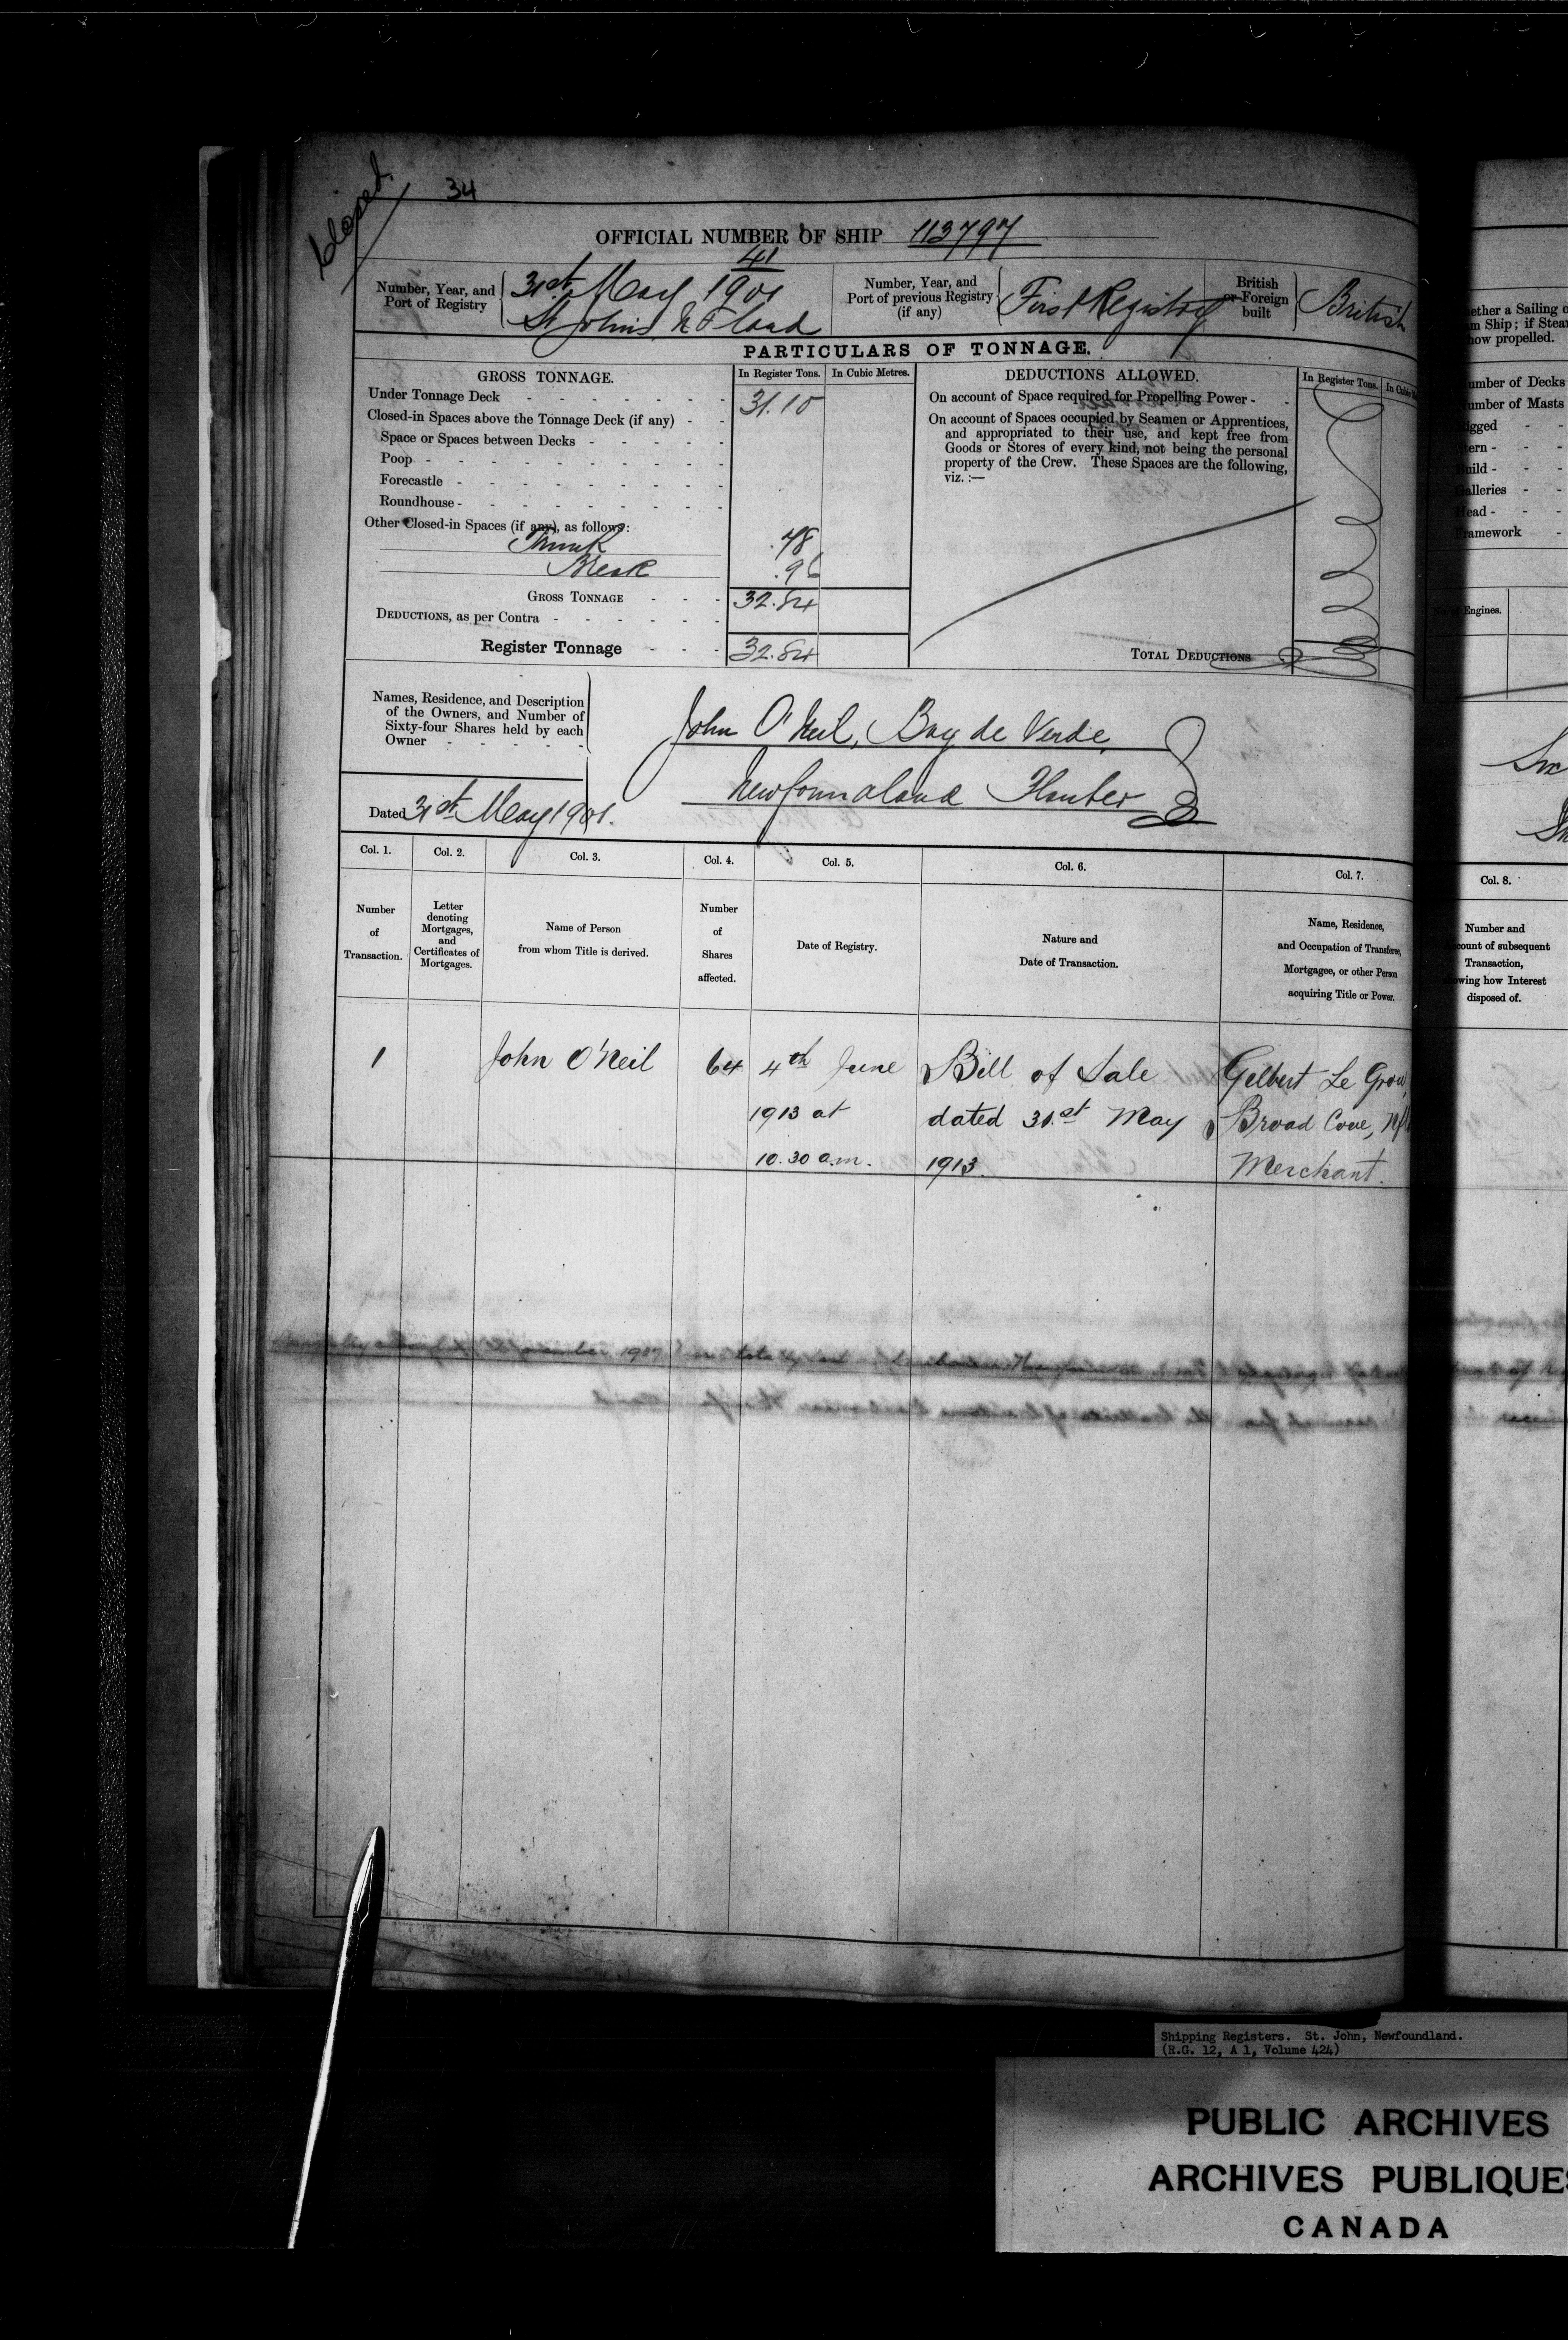 Closed
34
OFFICIAL NUMBER OF SHIP 113797
Number, Year, and Port of Registry
41
31st May 1901
St John's NFland
Number, Year, and Port of previous Registry (if any)
First Registry
British or Foreign built
British
PARTICULARS OF TONNAGE.
GROSS TONNAGE.
In Register Tons.
In Cubic Metres.
DEDUCTIONS ALLOWED.
In Register Tons.
Under Tonnage Deck 31.10
Closed-in Spaces above the Tonnage Deck (if any)
Space or Spaces between Decks
Poop
Forecastle
Roundhouse
Other Closed-in Spaces (if any), as follows:
Trunk .78
Break .96
GROSS TONNAGE 32.84
DEDUCTIONS, as per Contra
Register Tonnage 32.84
On account of Space required for Propelling Power
On account of Spaces occupied by Seamen or Apprentices,
and appropriated to their use, and kept free from
Goods or Stores of every kind, not being the personal
property of the Crew. These Spaces are the following,
viz. :—
TOTAL DEDUCTIONS
Names, Residence, and Description
of the Owners, and Number of
Sixty-four Shares held by each
Owner
John O'Neil, Bay de Verde,
Newfoundland Planter
Dated 31st May 1901.
Col. 1.
Number
of
Transaction.
Col. 2.
Letter
denoting
Mortgages,
and
Certificates of
Mortgages.
Col. 3.
Name of Person
from whom Title is derived.
Col. 4.
Number
of
Shares
affected.
Col. 5.
Date of Registry.
Col. 6.
Nature and
Date of Transaction.
Col. 7.
Name, Residence,
and Occupation of Transferee,
Mortgagee, or other Person
acquiring Title or Power.
Col. 8.
Number and
of subsequent
Transaction,
how Interest
disposed of.
1
John O'Neil
64
4th June
1913 at
10.30 a.m.
Bill of Sale
dated 31st May
1913.
Gilbert Le Grow,
Broad Cove,
Merchant.
Shipping Registers. St. John, Newfoundland.
(R.G. 12, A 1, Volume 424)
PUBLIC ARCHIVES
ARCHIVES PUBLIQUES
CANADA